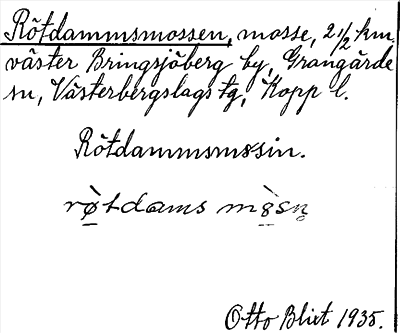 Rötdammsmossen, mosse, 2 1/2 km
väster Bringsjöberg by, Grangärde
sn, Västerbergslags tg, Kopp l.
Rötdammsmossin.
rø̀tdams
Otto Blixt 1935.